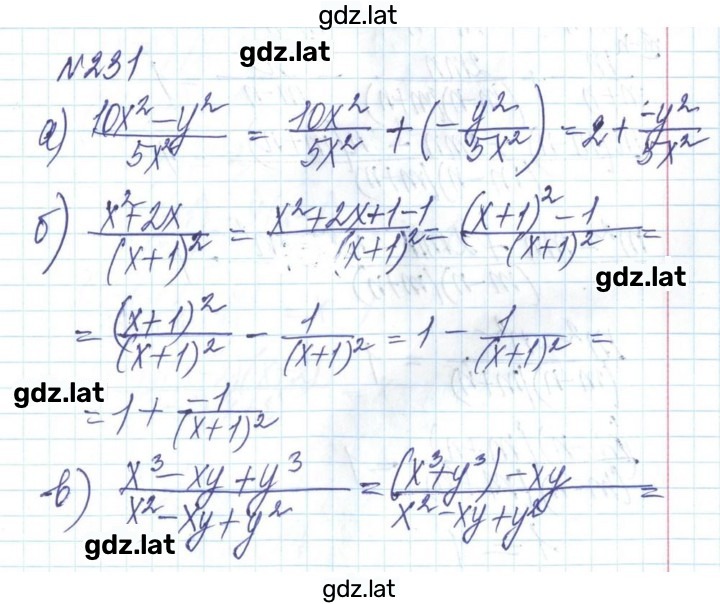 gdz.lat
№231
gdz.lat
а) (10x² - y²)/(5x²) = 10x²/5x² + (- y²/5x²) = 2 + -y²/5x²
б) (x² + 2x)/(x+1)² = (x² + 2x + 1 - 1)/(x+1)² = ((x+1)² - 1)/(x+1)² =
gdz.lat
= (x+1)²/(x+1)² - 1/(x+1)² = 1 - 1/(x+1)² =
gdz.lat
= 1 + -1/(x+1)²
в) (x³ - xy + y³)/(x² - xy + y²) = ((x³ + y³) - xy)/(x² - xy + y²) =
gdz.lat
gdz.lat